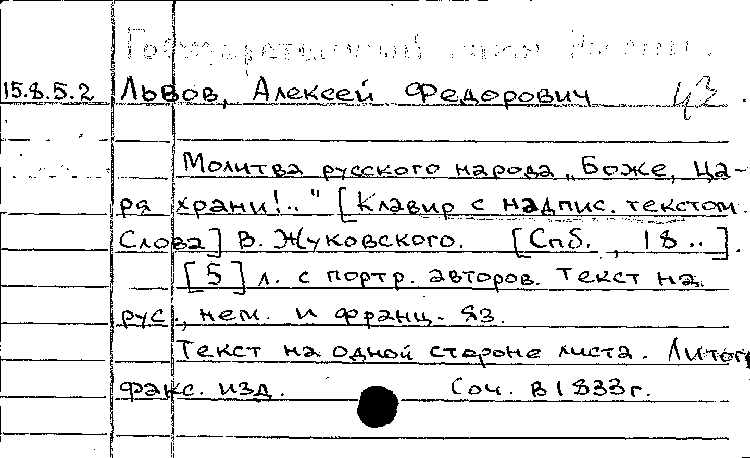 Государственный гимн
15.8.5.2 Львов, Алексей Федорович 43
Молитва русского народа „Боже, Ца-
ря храни!.." [Клавир с надпис. текстом.
Слова] В. Жуковского. [Спб., 18..].
[5] л. с портр. авторов. Текст на
рус., нем. и франц. яз.
Текст на одной стороне листа. Литогр
факс. изд. Соч. в 1833 г.